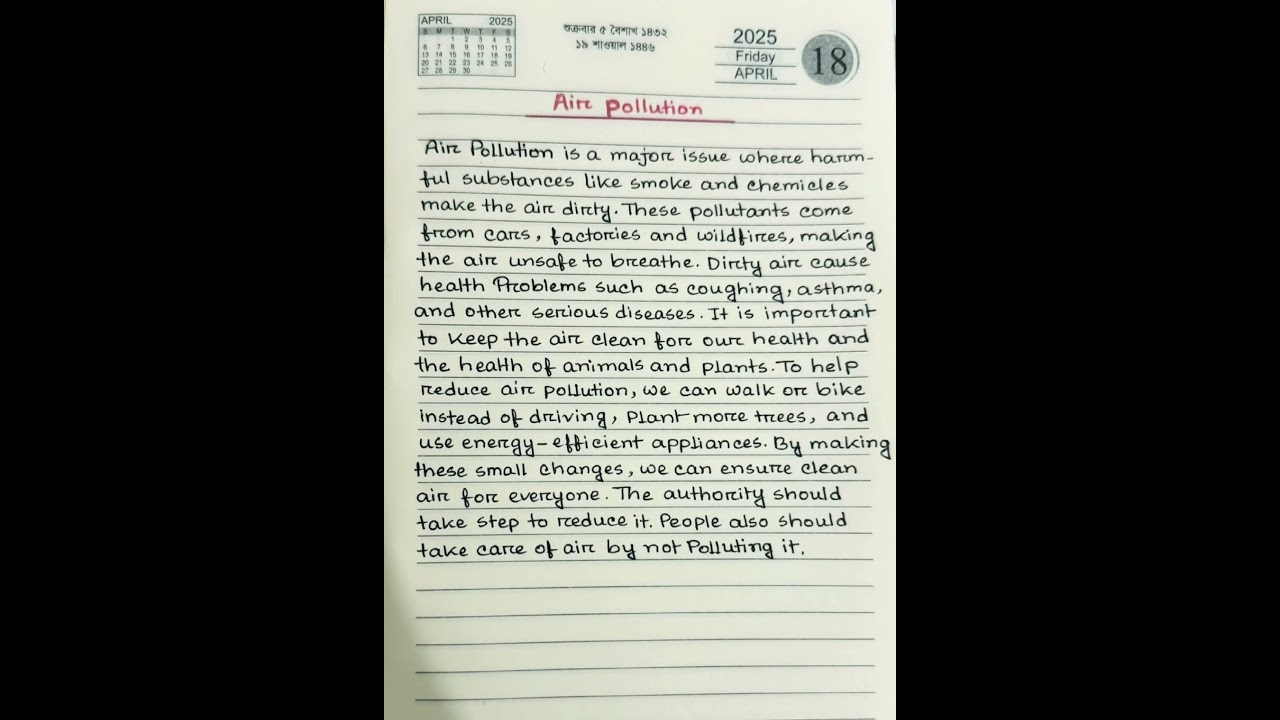 APRIL 2025
S M T W T F S
1 2 3 4 5
6 7 8 9 10 11 12
13 14 15 16 17 18 19
20 21 22 23 24 25 26
27 28 29 30
শুক্রবার ৫ বৈশাখ ১৪৩২
১৯ শাওয়াল ১৪৪৬
2025
Friday
APRIL
18
Air pollution
Air Pollution is a major issue where harm-
ful substances like smoke and chemicles
make the air dirty. These pollutants come
from cars, factories and wildfires, making
the air unsafe to breathe. Dirty air cause
health Problems such as coughing, asthma,
and other serious diseases. It is important
to keep the air clean for our health and
the health of animals and plants. To help
reduce air pollution, we can walk or bike
instead of driving, plant more trees, and
use energy-efficient appliances. By making
these small changes, we can ensure clean
air for everyone. The authority should
take step to reduce it. People also should
take care of air by not Polluting it.